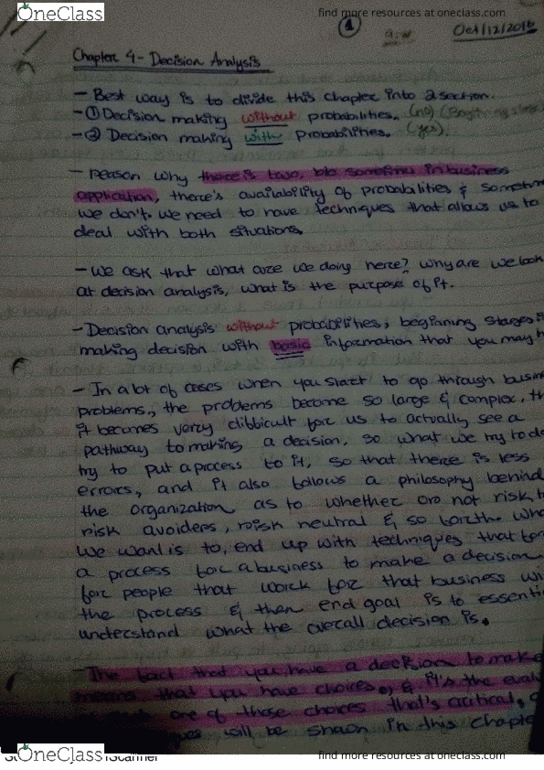 OneClass
find more resources at oneclass.com
1
Oct/12/2016
Chapter 4 - Decision Analysis
- Best way is to divide this chapter into 2 section.
- ① Decision making without probabilities. (no)
- ② Decision making with probabilities. (yes)
- Reason why there is two, b/c sometimes in business
application, there's availability of probabilities & sometimes
we don't. we need to have techniques that allows us to
deal with both situations.
- We ask that what are we doing here? why are we look
at decision analysis, what is the purpose of it.
- Decision analysis without probabilities; beginning stages
making decision with basic information that you may h
- In a lot of cases when you start to go through busin
problems, the problems become so large & complex, th
it becomes very difficult for us to actually see a
pathway to making a decision, so what we try to do
try to put a process to it, so that there is less
errors, and it also follows a philosophy behind
the organization as to whether or not risk
risk avoiders, risk neutral & so forth. Wha
we want is to, end up with techniques that for
a process for a business to make a decision
for people that work for that business wi
the process & then end goal is to essenti
understand what the overall decision is.
- The fact that you have a decision to make
means that you have choices, & it's the eval
one of those choices that's critical,
will be shown in this chapte
OneClass
Scanner
find more resources at oneclass.com